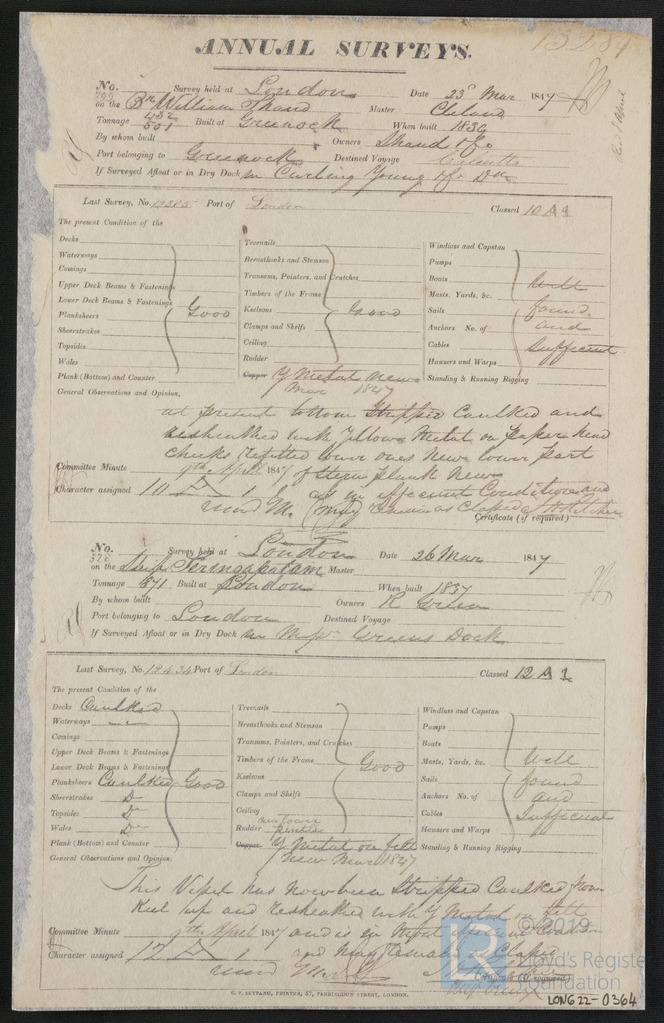 13284
ANNUAL SURVEYS.
No. 299 Survey held at London Date 23 Mar 1847
on the Bn William Shand Master Cleland
Tonnage 432 501 Built at Greenock When built 1839
By whom built Owners Shand & Co
Port belonging to Greenock Destined Voyage Calcutta
If Surveyed Afloat or in Dry Dock in Curling Young & Co Do
Last Survey, No. Port of London Classed 10 A 1
The present Condition of the
Decks
Waterways
Comings
Upper Deck Beams & Fastenings
Lower Deck Beams & Fastenings
Planksheers Good
Sheerstrakes
Topsides
Wales
Plank (Bottom) and Counter
Treenails
Breasthooks and Stemson
Transoms, Pointers, and Crutches
Timbers of the Frame
Keelsons Good
Clamps and Shelfs
Ceiling
Rudder
Copper Y Metal New
Mar 1847
Windlass and Capstan
Pumps
Boats Well
Masts, Yards, &c.
Sails found
Anchors No. of and
Cables Sufficient
Hausers and Warps
Standing & Running Rigging
General Observations and Opinion,
at present bottom Stripped Caulked and
resheathed with Yellow Metal on Paper
cheeks refitted lower ones New lower part
of stern plank New
Committee Minute 9th April 1847
Character assigned 10 A 1
and in efficient Condition and
may remain as Classed
Certificate (if required)
No. 328 Survey held at London Date 26 Mar 1847
on the Ship Seringapatam Master
Tonnage 871 Built at London When built 1837
By whom built Owners R Green
Port belonging to London Destined Voyage
If Surveyed Afloat or in Dry Dock in Messrs Greens Dock
Last Survey, No. 12434 Port of London Classed 12 A 1
The present Condition of the
Decks Caulked
Waterways
Comings
Upper Deck Beams & Fastenings
Lower Deck Beams & Fastenings
Planksheers Caulked Good
Sheerstrakes Do
Topsides Do
Wales Do
Plank (Bottom) and Counter
Treenails
Breasthooks and Stemson
Transoms, Pointers, and Crutches
Timbers of the Frame Good
Keelsons
Clamps and Shelfs
Ceiling
Rudder new lower pintle
Copper Y Metal on felt
New Mar 1847
Windlass and Capstan
Pumps
Boats
Masts, Yards, &c. Well
Sails found
Anchors No. of and
Cables Sufficient
Hausers and Warps
Standing & Running Rigging
General Observations and Opinion,
This Vessel has now been Stripped Caulked from
Keel up and resheathed with Y Metal on felt
Committee Minute 9th April 1847 and is in
Character assigned 12 A 1
and may remain as Classed
Certificate (if required)
G. F. SEYFANG, PRINTER, 57, FARRINGDON STREET, LONDON.
© 2019
Lloyd's Register
Foundation
LON622-0364